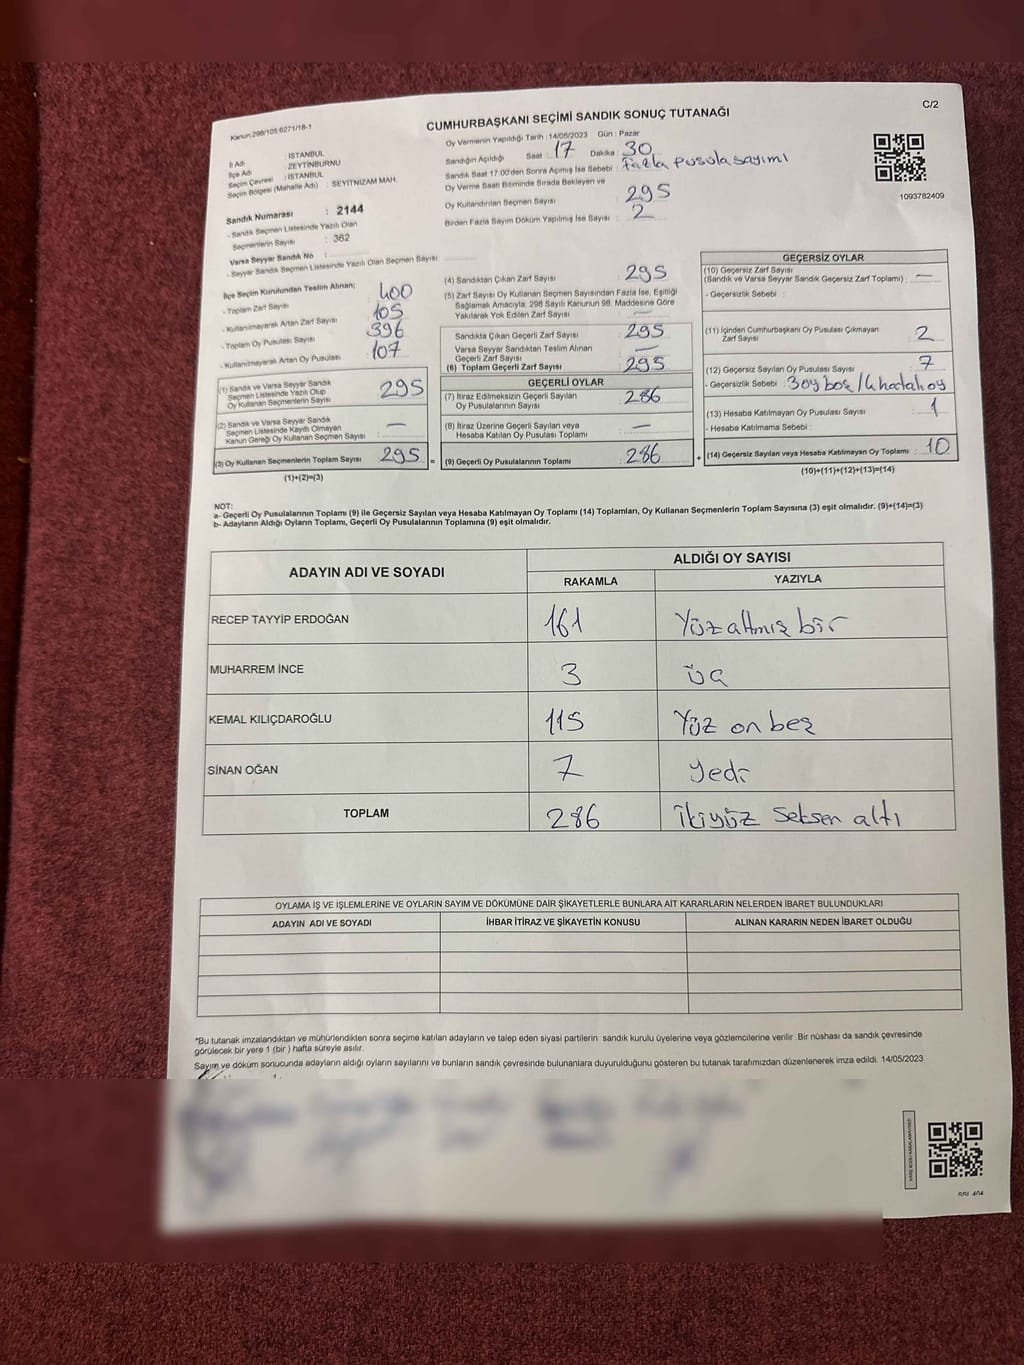 Kanun:298/105 6271/18-1
CUMHURBAŞKANI SEÇİMİ SANDIK SONUÇ TUTANAĞI
C/2
İl Adı : İSTANBUL
İlçe Adı : ZEYTİNBURNU
Seçim Çevresi : İSTANBUL
Seçim Bölgesi (Mahalle Adı) : SEYİTNİZAM MAH.
Sandık Numarası : 2144
- Sandık Seçmen Listesinde Yazılı Olan
Seçmenlerin Sayısı : 362
Varsa Seyyar Sandık No :
- Seyyar Sandık Seçmen Listesinde Yazılı Olan Seçmen Sayısı
Oy Vermenin Yapıldığı Tarih : 14/05/2023 Gün : Pazar
Sandığın Açıldığı Saat : 17 Dakika : 30
Sandık Saat 17:00'den Sonra Açılmış İse Sebebi : Fazla pusula sayımı
Oy Verme Saati Bitiminde Sırada Bekleyen ve
Oy Kullandırılan Seçmen Sayısı : 295
Birden Fazla Sayım Döküm Yapılmış İse Sayısı : 2
1093782409
İlçe Seçim Kurulundan Teslim Alınan;
- Toplam Zarf Sayısı 400
- Kullanılmayarak Artan Zarf Sayısı 105
- Toplam Oy Pusulası Sayısı 396
- Kullanılmayarak Artan Oy Pusulası 107
(1) Sandık ve Varsa Seyyar Sandık
Seçmen Listesinde Yazılı Olup
Oy Kullanan Seçmenlerin Sayısı 295
(2) Sandık ve Varsa Seyyar Sandık
Seçmen Listesinde Kayıtlı Olmayan
Kanun Gereği Oy Kullanan Seçmen Sayısı : —
(3) Oy Kullanan Seçmenlerin Toplam Sayısı 295 =
(1)+(2)=(3)
(4) Sandıktan Çıkan Zarf Sayısı : 295
(5) Zarf Sayısı Oy Kullanan Seçmen Sayısından Fazla İse, Eşitliği
Sağlamak Amacıyla, 298 Sayılı Kanunun 98. Maddesine Göre
Yakılarak Yok Edilen Zarf Sayısı : —
Sandıkta Çıkan Geçerli Zarf Sayısı : 295
Varsa Seyyar Sandıktan Teslim Alınan
Geçerli Zarf Sayısı : —
(6) Toplam Geçerli Zarf Sayısı : 295
GEÇERLİ OYLAR
(7) İtiraz Edilmeksizin Geçerli Sayılan
Oy Pusulalarının Sayısı : 286
(8) İtiraz Üzerine Geçerli Sayılan veya
Hesaba Katılan Oy Pusulası Toplamı : —
(9) Geçerli Oy Pusulalarının Toplamı : 286 +
GEÇERSİZ OYLAR
(10) Geçersiz Zarf Sayısı
(Sandık ve Varsa Seyyar Sandık Geçersiz Zarf Toplamı) : —
- Geçersizlik Sebebi :
(11) İçinden Cumhurbaşkanı Oy Pusulası Çıkmayan
Zarf Sayısı : 2
(12) Geçersiz Sayılan Oy Pusulası Sayısı : 7
- Geçersizlik Sebebi : 3 oy boş / 4 hatalı oy
(13) Hesaba Katılmayan Oy Pusulası Sayısı : 1
- Hesaba Katılmama Sebebi :
(14) Geçersiz Sayılan veya Hesaba Katılmayan Oy Toplamı : 10
(10)+(11)+(12)+(13)=(14)
NOT:
a- Geçerli Oy Pusulalarının Toplamı (9) ile Geçersiz Sayılan veya Hesaba Katılmayan Oy Toplamı (14) Toplamları, Oy Kullanan Seçmenlerin Toplam Sayısına (3) eşit olmalıdır. (9)+(14)=(3)
b- Adayların Aldığı Oyların Toplamı, Geçerli Oy Pusulalarının Toplamına (9) eşit olmalıdır.
ADAYIN ADI VE SOYADI ALDIĞI OY SAYISI
RAKAMLA YAZIYLA
RECEP TAYYİP ERDOĞAN 161 Yüz altmış bir
MUHARREM İNCE 3 üç
KEMAL KILIÇDAROĞLU 115 Yüz on beş
SİNAN OĞAN 7 yedi
TOPLAM 286 ikiyüz seksen altı
OYLAMA İŞ VE İŞLEMLERİNE VE OYLARIN SAYIM VE DÖKÜMÜNE DAİR ŞİKAYETLERLE BUNLARA AİT KARARLARIN NELERDEN İBARET BULUNDUKLARI
ADAYIN ADI VE SOYADI İHBAR İTİRAZ VE ŞİKAYETİN KONUSU ALINAN KARARIN NEDEN İBARET OLDUĞU
*Bu tutanak imzalandıktan ve mühürlendikten sonra seçime katılan adayların ve talep eden siyasi partilerin sandık kurulu üyelerine veya gözlemcilerine verilir .Bir nüshası da sandık çevresinde
görülecek bir yere 1 (bir ) hafta süreyle asılır.
Sayım ve döküm sonucunda adayların aldığı oyların sayılarını ve bunların sandık çevresinde bulunanlara duyurulduğunu gösteren bu tutanak tarafımızdan düzenlenerek imza edildi. 14/05/2023